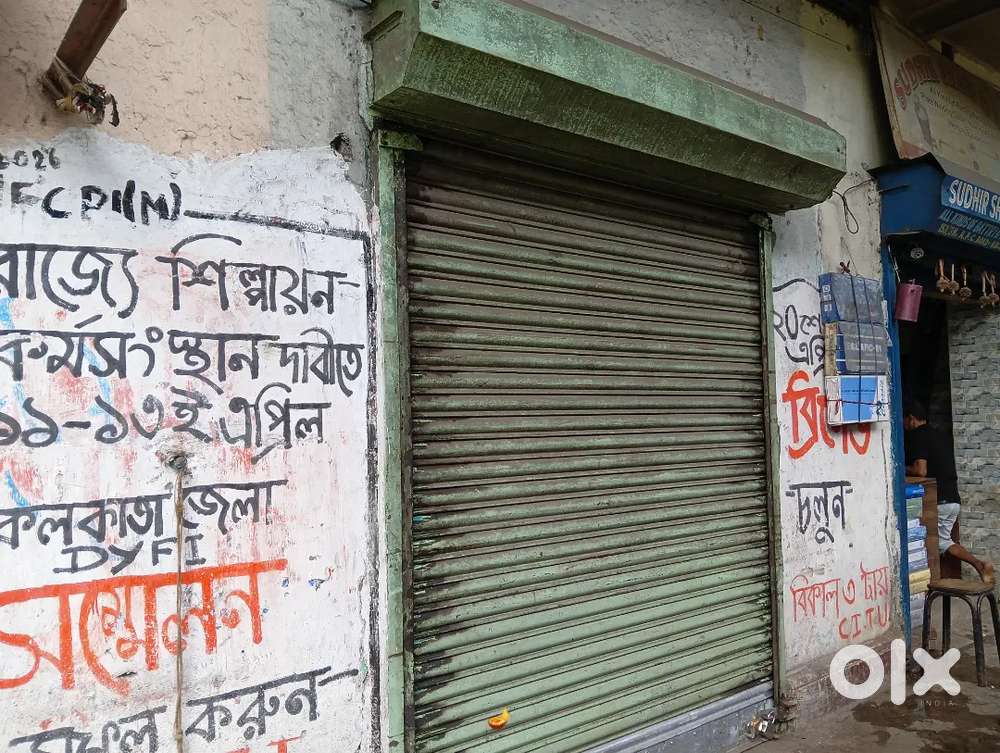 2026
CPI(M)
রাজ্যে শিল্পায়ন
কর্মসংস্থান দাবীতে
১১-১৩ই এপ্রিল
কলকাতা জেলা
DYFI
সম্মেলন
সফল করুন
২০শে
এপ্রি
ব্রিগেড
চলুন
বিকাল ৩ টায়
CITU
SUDHIR
SUDHIR S
olx
INDIA